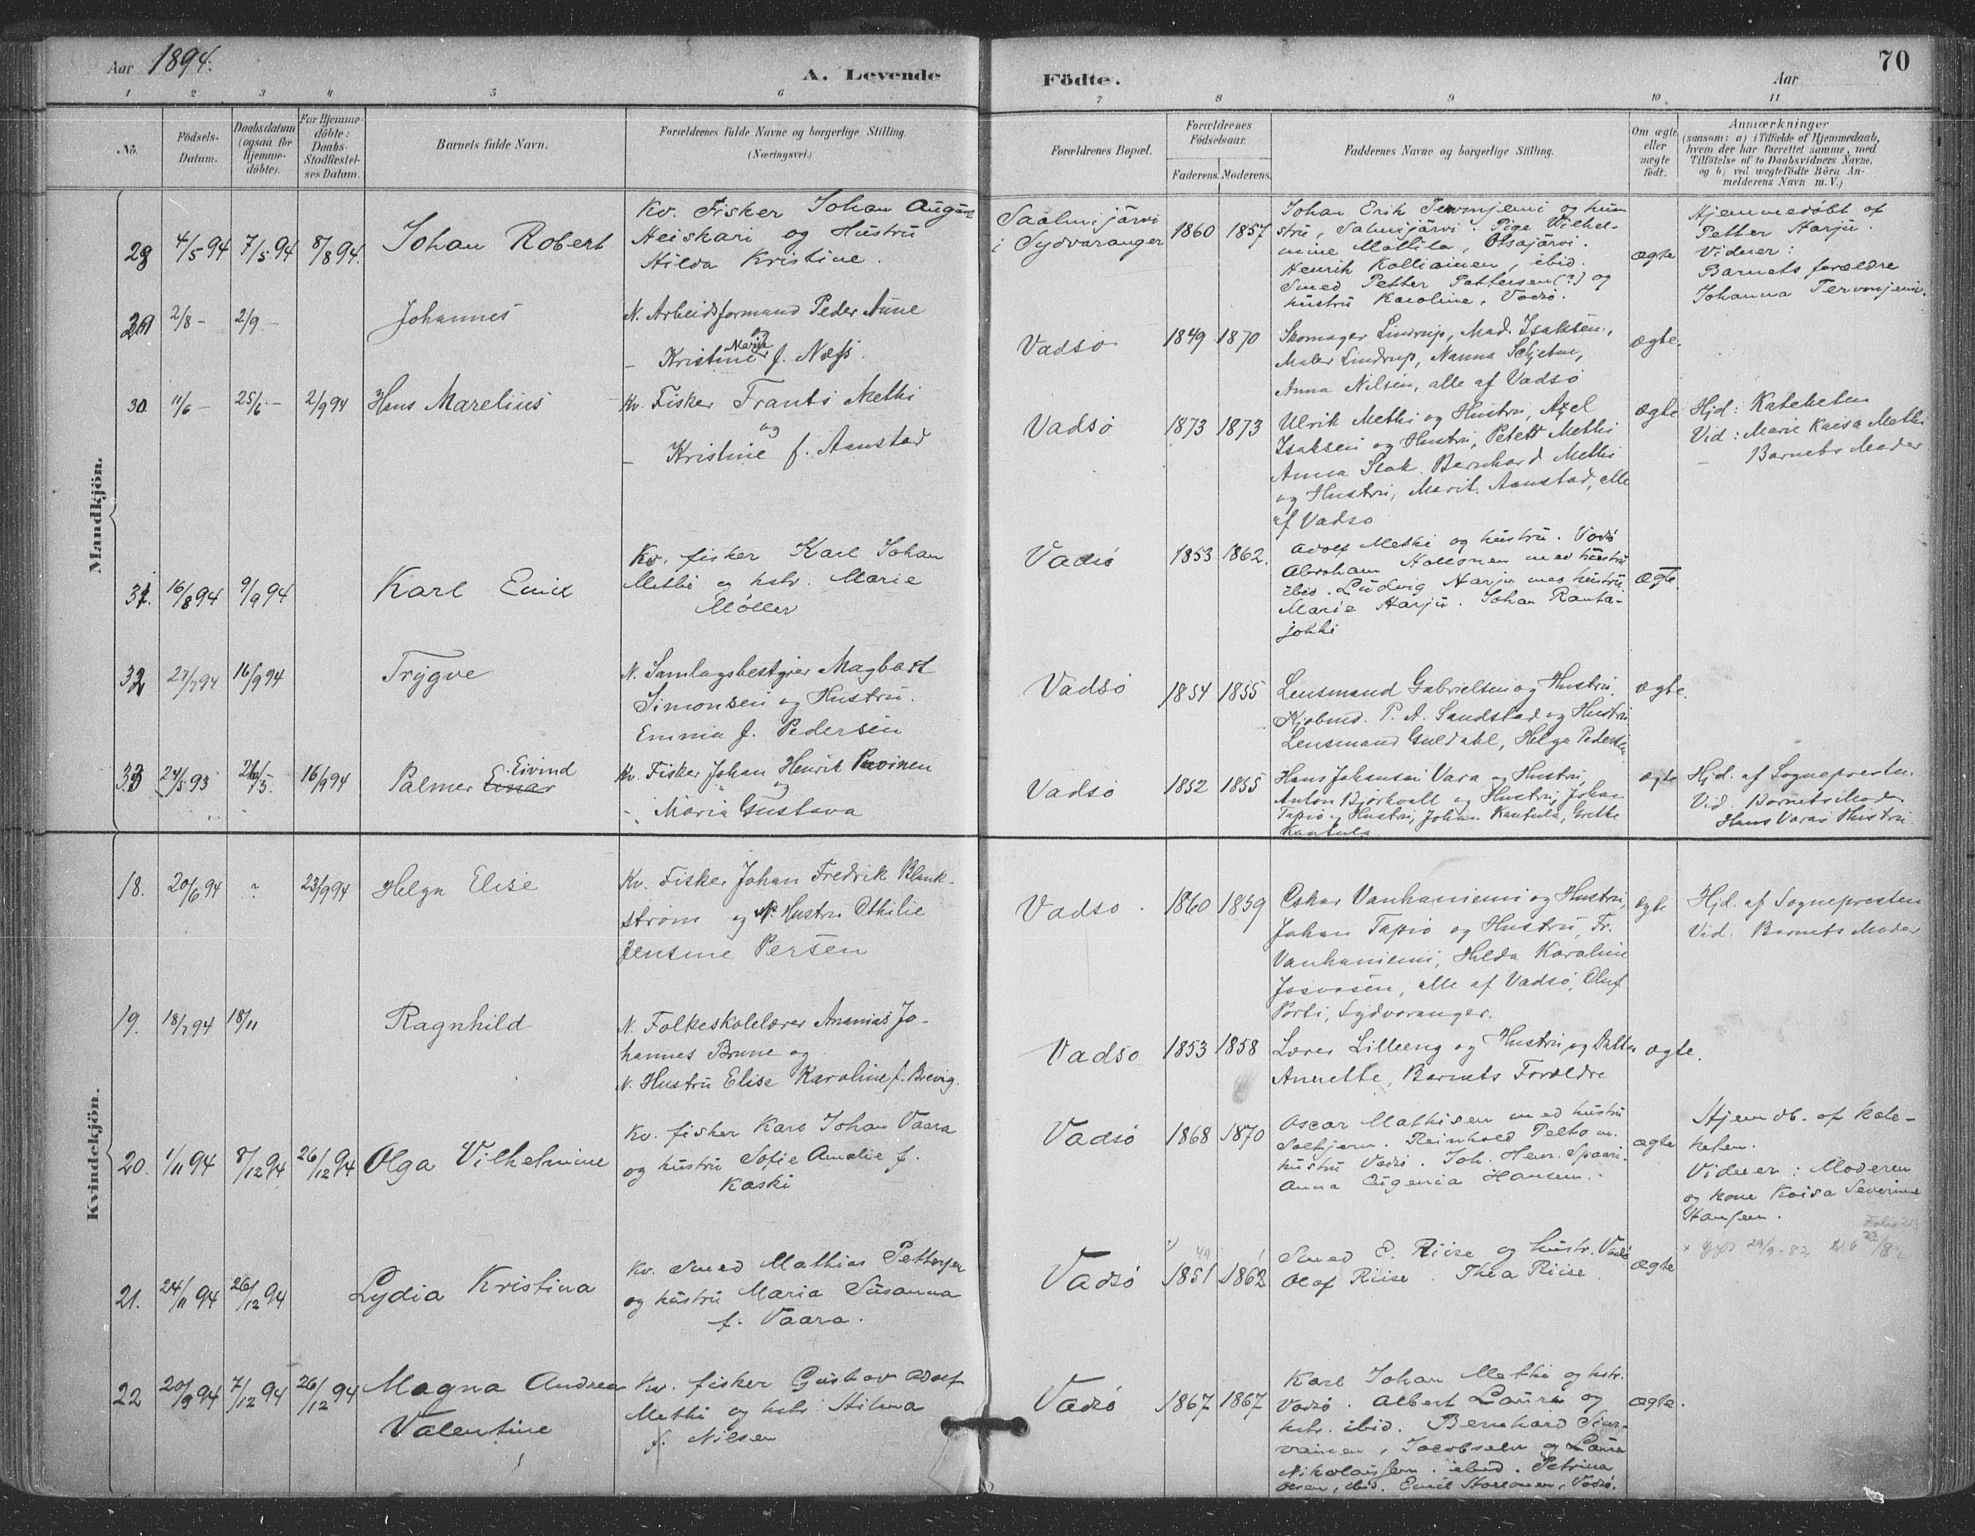 Aar 1894.
A. Levende
Födte.
Aar
70
1 2 3 4 5 6 7 8 9 10 11
No.
Födsels-
Datum.
Daabsdatum
(ogsaa for
Hjemme-
döbte).
For Hjemme-
döbte:
Daabs-
Stadfæstel-
ses Datum.
Barnets fulde Navn.
Forældrenes fulde Navne og borgerlige Stilling.
(Næringsvei.)
Forældrenes Bopæl.
Forældrenes
Födselsaar.
Faderens. Moderens.
Faddernes Navne og borgerlige Stilling.
Om ægte
eller
uægte
födt.
Anmærkninger
(saasom: a) i Tilfælde af Hjemmedaab,
hvem der har forrettet samme, med
Tilföielse af to Daabsvidners Navne,
og b) ved uægtefödte Börn An-
melderens Navn m. V.)
Mandkjön.
28 4/5 94 7/5 94 8/8 94. Johan Robert
Kv. Fisker Johan August
Heiskari og Hustru
Hilda Kristine.
Saalmijärvi
i Sydvaranger
1860 1857
Johan Erik Tervonjemi og hun
stru, Salmijärvi. Pige Vilhel-
mine Mattila, Otsajärvi.
Henrik Kolliainen, ibid.
Smed Petter Pettersen(?) og
hustru Karoline, Vadsö.
ægte
Hjemmedøbt af
Petter Harju.
Vidner:
Barnets forældre
Johanna Tervonjemi.
29 2/8 – 2/9 – Johannes
N. Arbeidsformand Peder Aune
og
– Kristine Marie f. Næss.
Vadsø 1849 1870
Skomager Lindrup, Mad. Isaksen,
Maler Lindrup, Nanna Schjetne,
Anna Nilsen, alle af Vadsø
ægte.
30 11/6 – 25/6 – 2/9 94 Hans Marelius
Kv. Fisker Frants Methi
og
– Kristine f. Aanstad
Vadsø 1873 1873
Ulrik Methi og Hustru, Axel
Isaksen og Hustru, Petett Methi
Anna Slak. Bernhard Methi
og Hustru, Marit Aanstad, alle
af Vadsø
ægte
Hjd: Kateketen
Vid: Marie Kaisa Methi
– Barnets Moder
31. 16/8 94 9/9 94 Karl Emil
Kv. fisker Karl Johan
Methi og hstr. Marie
Møller
Vadsø 1853 1862.
Adolf Methi og hustru. Vadsö
Abraham med hustru
ibid. Ludvig Harju med hustru
Marie Harju. Johan Ranta-
jokki
ægte.
32 27/7 94 16/9 94 Trygve
N. Samlagsbestyrer Magbert
Simonsen og Hustru.
Emma f. Pedersen
Vadsø 1854 1855
Lensmand Gabrielsen og Hustru.
Kjøbmd. P. A. Sandstad og Hustru
Lensmand Guldahl, Helga Pedersen
ægte.
33 24/5 93 26/5. 16/9 94 Palmer Einar Eivind
Kv. Fisker Johan Henrik Paavinen
– Maria Gustava
Vadsø 1852 1855
Hans Johansen Vara og Hustru
Anton Bjørkvall og Hustru, Johan
Tapio og Hustru, Johan Kantula, Grethe
Kantula
ægte
Hjd. af Sognepresten.
Vid. Barnets Moder
Hans Varas Hustru
Kvindekjön.
18. 20/6 94 ? 23/9 94 Helga Elise
Kv. Fisker Johan Fredrik Blank-
strøm og N. Hustru Othilie
Jensine Persen
Vadsø 1860 1859
Oskar Vanhaniemi og Hustru,
Johan Tapio og Hustru, Fr.
Vanhaniemi, Hilda Karoline
Josvasen, alle af Vadsø, Oluf
Porti, Sydvaranger.
ægte
Hjd. af Sognepresten
Vid. Barnets Moder
19. 18/7 94 18/11 Ragnhild
N. Folkeskolelærer Ananias Jo-
hannes Brune og
N. Hustru Elise Karoline f. Brevig.
Vadsø 1853 1858
Lærer Lilleeng og Hustru og Datter
Annette, Barnets Forældre
ægte.
20. 1/11 94 8/12 94 26/12 94 Olga Vilhelmine
Kv. fisker Karl Johan Vaara
og hustru Sofie Amalie f.
Kaski
Vadsø 1868 1870
Oscar Mathisen med hustru
Solhjem. Reinhold Pelto m.
hustru Vadsö. Joh. Henr. Spaari.
Anna Eugenia Hansen.
ægte
Hjemdb. af Kate-
keten.
Vidner: Moderen
og kone Kaisa Severine
Hansen.
21. 24/11 94 26/12 94 Lydia Kristina
Kv. Smed Mathias Pettersen
og hustru Maria Susanna
f. Vaara.
Vadsø 1851 49 1862
Smed E. Riise og hustr. Vadsö
Olaf Riise. Thea Riise.
ægte
22 20/9 94 7/12 94 26/12 94 Magna Andrea
Valentine
Kv. fisker Gustav Adolf
Methi og hstr Hilma
f. Nilsen
Vadsø 1867 1867
Karl Johan Methi og hstr.
Vadsö. Albert Lauri og
hstr. ibid. Bernhard
Jacobsen og Laura
Nikolaisen. ibid. Petrina
Olsen, ibid. Emil , Vadsö.
ægte.